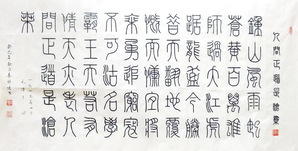 人間正道是滄桑
鍾山風雨起
蒼黃百萬雄
師過大江虎
踞龍盤今勝
昔天翻地覆
慨而慷宜將
剩勇追窮寇
不可沽名學
霸王天若有
情天亦老人
間正道是滄
桑